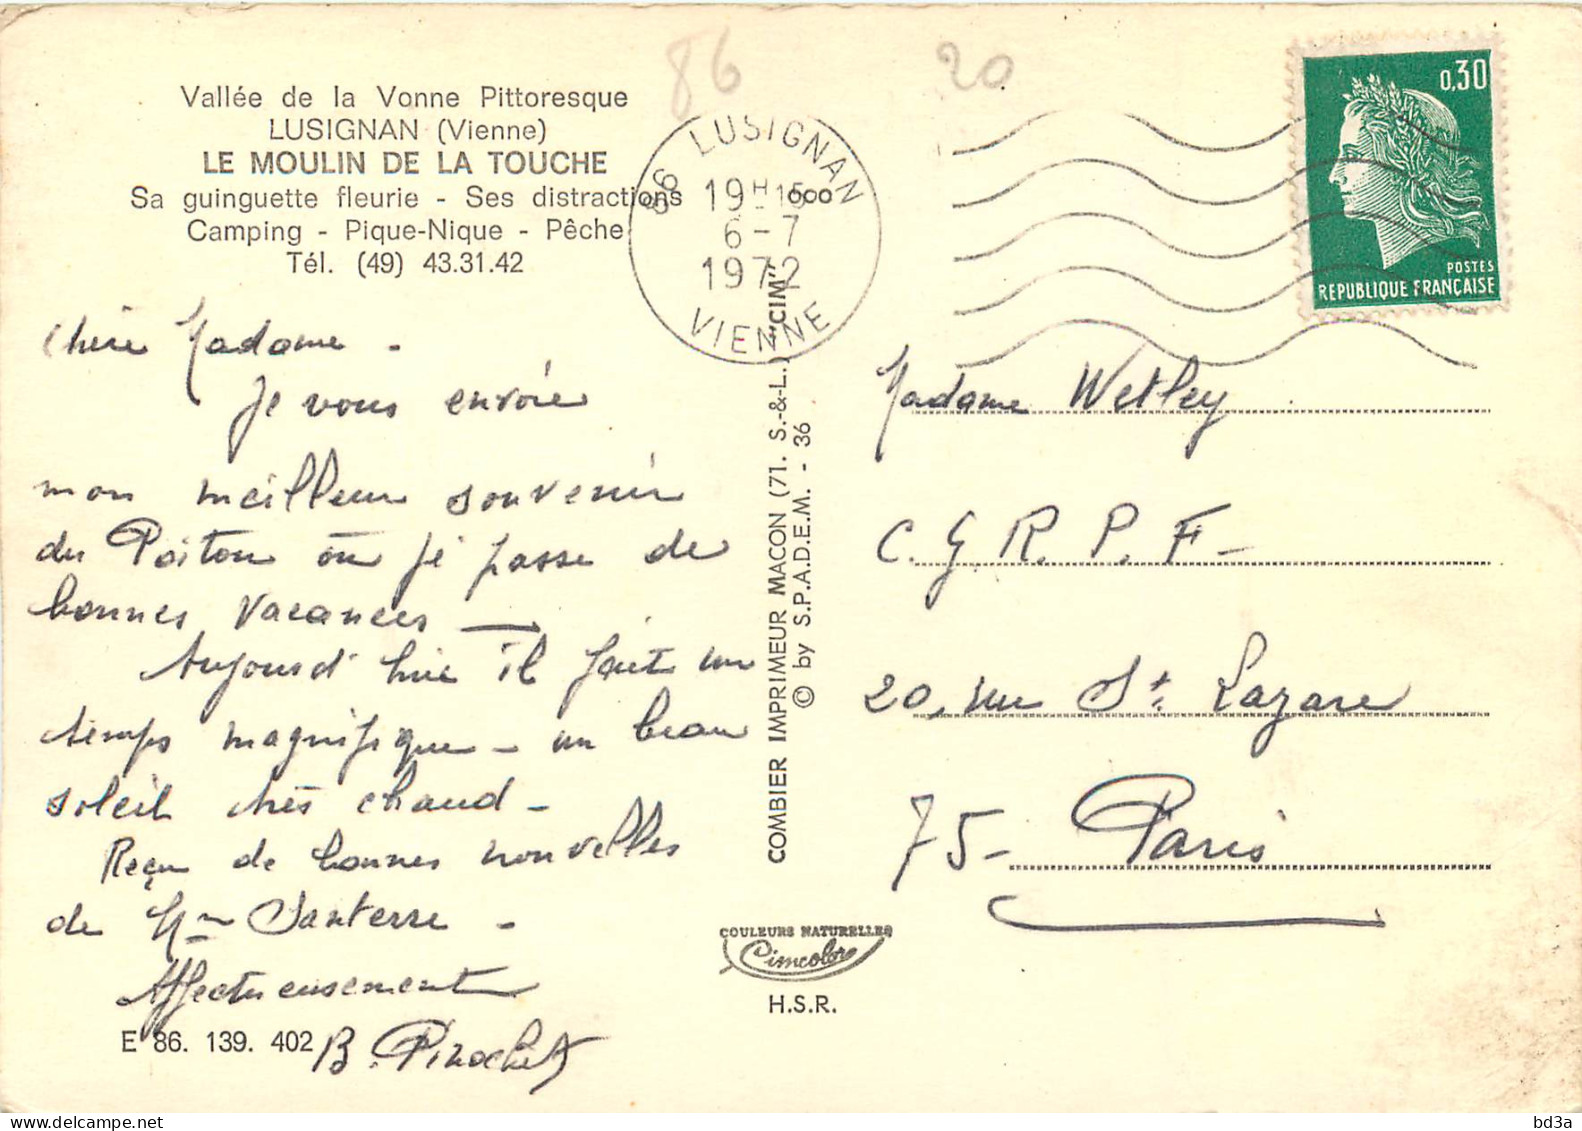 86
20
Vallée de la Vonne Pittoresque
LUSIGNAN (Vienne)
LE MOULIN DE LA TOUCHE
Sa guinguette fleurie - Ses distractions
Camping - Pique-Nique - Pêche
Tél. (49) 43.31.42
86 LUSIGNAN
19H15
6-7
1972
VIENNE
0,30
POSTES
REPUBLIQUE FRANÇAISE
Chère Madame -
Je vous envoie
mon meilleur souvenir
du Poitou où je passe de
bonnes vacances —
Aujourd'hui il fait un
temps magnifique - un beau
soleil très chaud -
Reçu de bonnes nouvelles
de Mme Santerre -
Affectueusement
B. Pinochet
E 86. 139. 402
COMBIER IMPRIMEUR MACON (71. S.-&-L.) "CIM"
© by S.P.A.D.E.M. - 36
COULEURS NATURELLES
Cimcolor
H.S.R.
Madame Wetley
C.G.R.P.F-
20, rue St. Lazare
75- Paris
bd3a